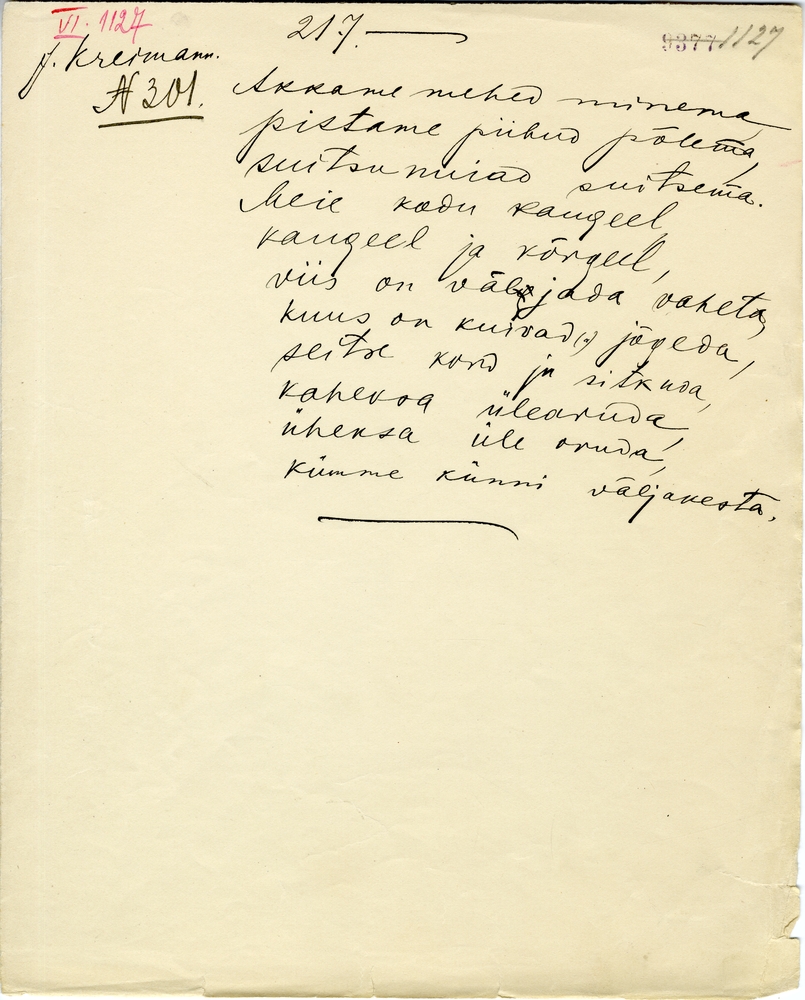 VI. 1127
217.
9377 1127
J. Kreimann.
N 301.
Akkame mehed minema,
pistame piibud põlema,
suitsunuiad suitsema.
Meie kodu kaugeel,
kaugeel ja kõrgeel,
viis on väljada vaheta,
kuus on kuivad(?) jõgeda,
seitse kord ja sitkuda,
kaheksa ülearuda,
üheksa üle oruda,
kümme künni väljakesta.